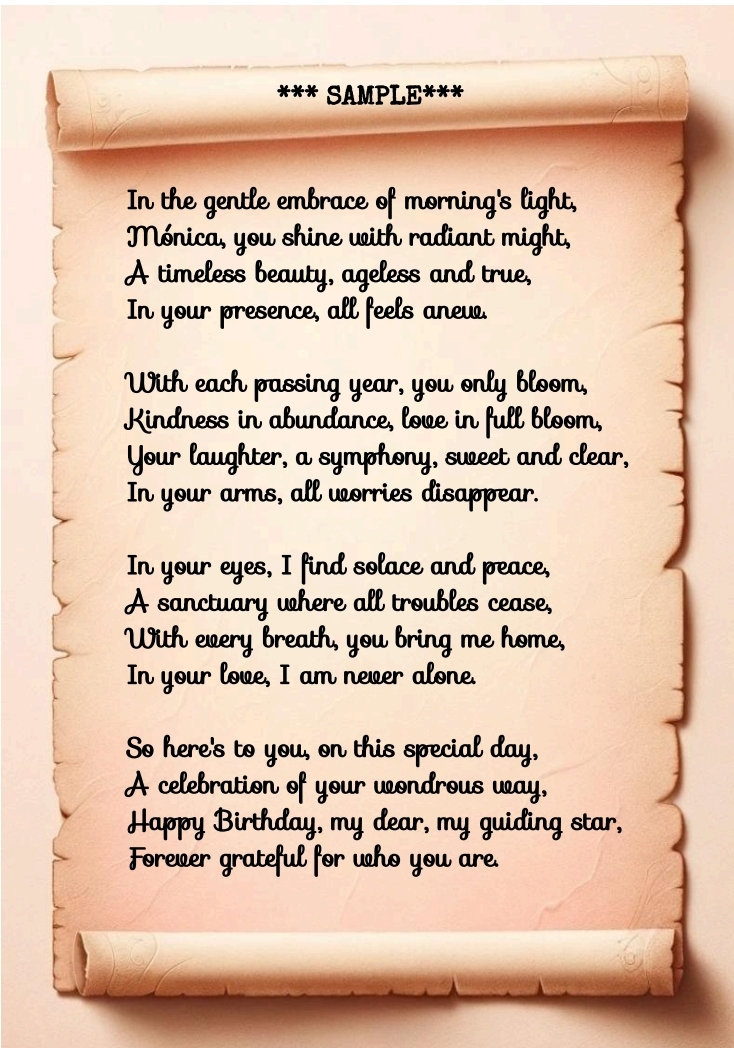 *** SAMPLE***
In the gentle embrace of morning's light,
Mónica, you shine with radiant might,
A timeless beauty, ageless and true,
In your presence, all feels anew.
With each passing year, you only bloom,
Kindness in abundance, love in full bloom,
Your laughter, a symphony, sweet and clear,
In your arms, all worries disappear.
In your eyes, I find solace and peace,
A sanctuary where all troubles cease,
With every breath, you bring me home,
In your love, I am never alone.
So here's to you, on this special day,
A celebration of your wondrous way,
Happy Birthday, my dear, my guiding star,
Forever grateful for who you are.